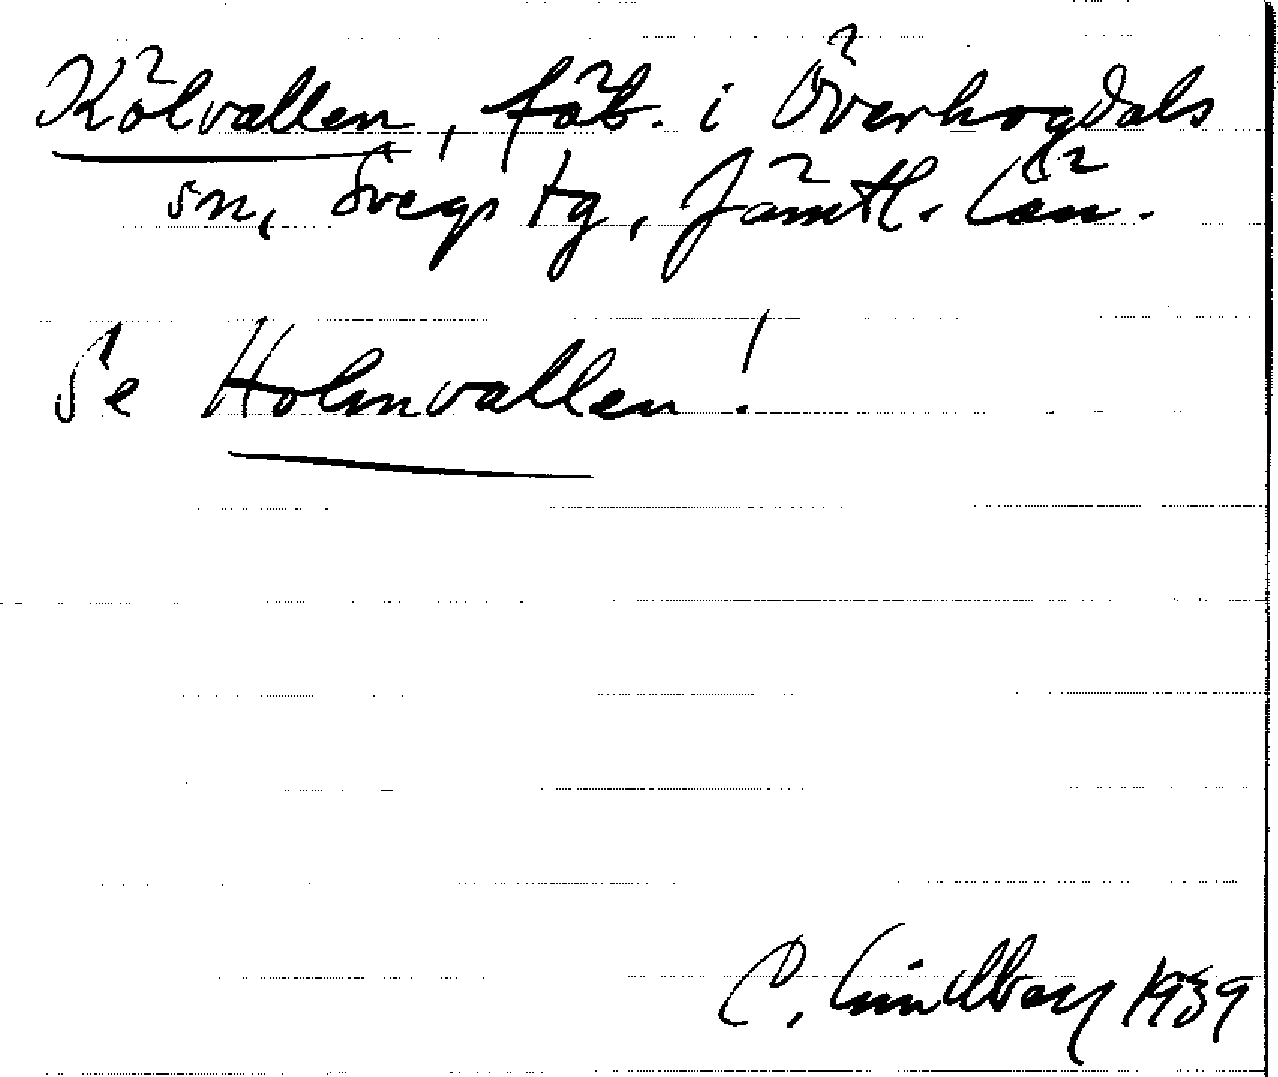 Kölvallen, fäb. i Överhogdals
sn, Svegs tg, Jämtl. län.
Se Holmvallen!
C. Lindberg 1939